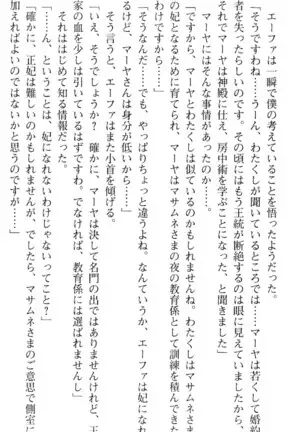 エーファは一瞬で僕の考えていることを悟ったようだった。
「そうですわね……うーん、わたくしが聞いているところでは……マーヤは若くして婚約
者を失ったらしいのです。その頃にはもう王統が断絶するのは眼に見えていましたから、
それでマーヤは神殿に仕え、房中術を学ぶことになった、と聞きました」
マーヤにはそんな事情があったのか。
「ですから、マーヤとわたくしは似ているのかもしれませんね。わたくしはマサムネさま
の妃となるために育てられ、マーヤはマサムネさまの夜の教育係として訓練を積んできた
わけですから……」
「そうなんだ……でも、やっぱりちょっと違うよね。なんていうか、エーファは妃になれ
るけど、マーヤさんは身分が低いから……」
そう言うと、エーファはまた小首を傾げる。
「いえ、そうでしょうか？　確かに、マーヤは決して名門の出ではありませんけれど、王
家の血を少しは引いているはずですわ。でなければ、教育係には選ばれませんし」
それははじめて知る情報だった。
「……ん、ということは、妃になれないわけじゃないってこと？」
「確かに、正妃は難しいのかもしれませんが、でしたら、マサムネさまのご意思で側室に
加えればよいのではないかと思うのですが……」